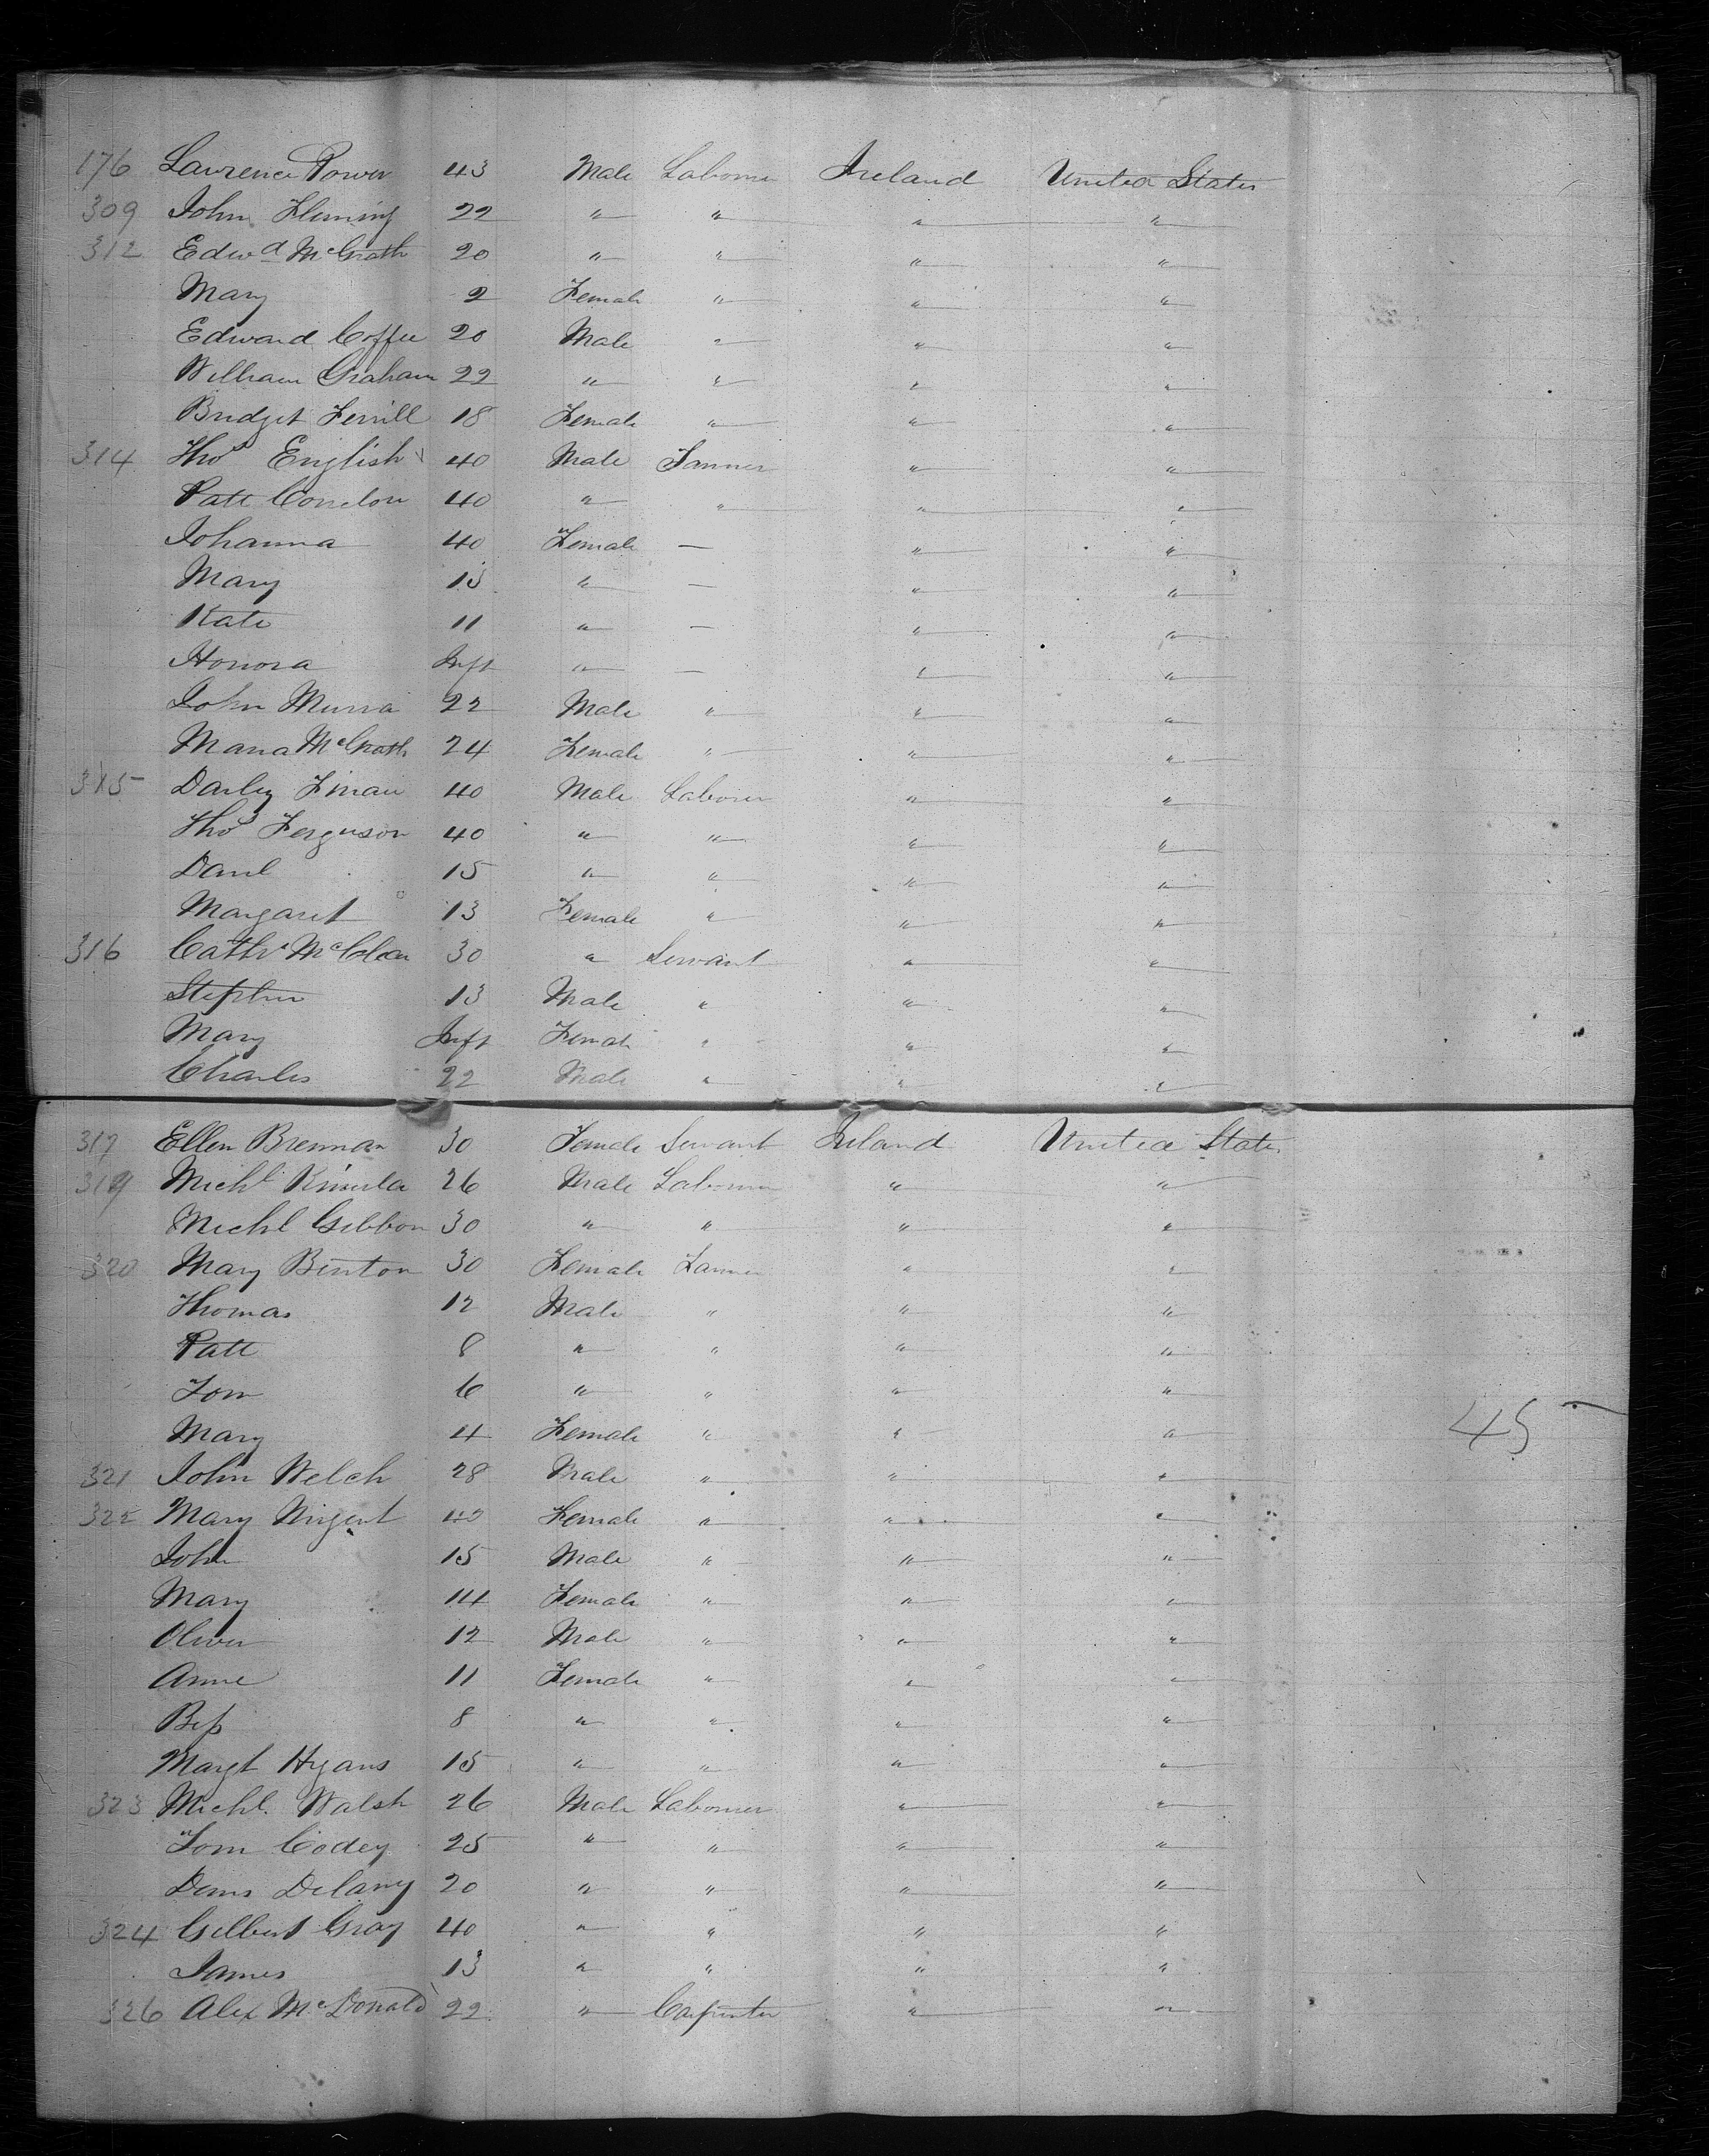 176 Lawrence Power 43 Male Laborer Ireland United States
309 John Fleming 22 " " " "
312 Edwd McGrath 20 " " " "
Mary 2 Female " " "
Edward Coffee 20 Male " " "
William Graham 22 " " " "
Bridget Ferrill 18 Female " " "
314 Thos English 40 Male Farmer " "
Patt Condon 40 " " " "
Johanna 40 Female — " "
Mary 13 " — " "
Kate 11 " — " "
Honora Inft " — " "
John Murra 22 Male " " "
Maria McGrath 24 Female " " "
315 Darby Finan 40 Male Laborer " "
Thos Ferguson 40 " " " "
Danl 15 " " " "
Margaret 13 Female " " "
316 Cathe McClean 30 " Servant " "
Stephen 13 Male " " "
Mary Inft Female " " "
Charles 22 Male " " "
317 Ellen Brennan 30 Female Servant Ireland United States
319 Michl 26 Male Laborer " "
Michl Gibbon 30 " " " "
320 Mary Binton 30 Female Farmer " "
Thomas 12 Male " " "
Patt 8 " " " "
Tom 6 " " " "
Mary 4 Female " " "
45
321 John Welch 28 Male " " "
322 Mary Nugent 40 Female " " "
John 15 Male " " "
Mary 14 Female " " "
Oliver 12 Male " " "
Anne 11 Female " " "
Bess 8 " " " "
Margt Hyans 15 " " " "
323 Michl. Walsh 26 Male Laborer " "
Tom Codey 25 " " " "
Denis Delany 20 " " " "
324 Gilbert Gray 40 " " " "
James 13 " " " "
326 Alex McDonald 22 " Carpenter " "